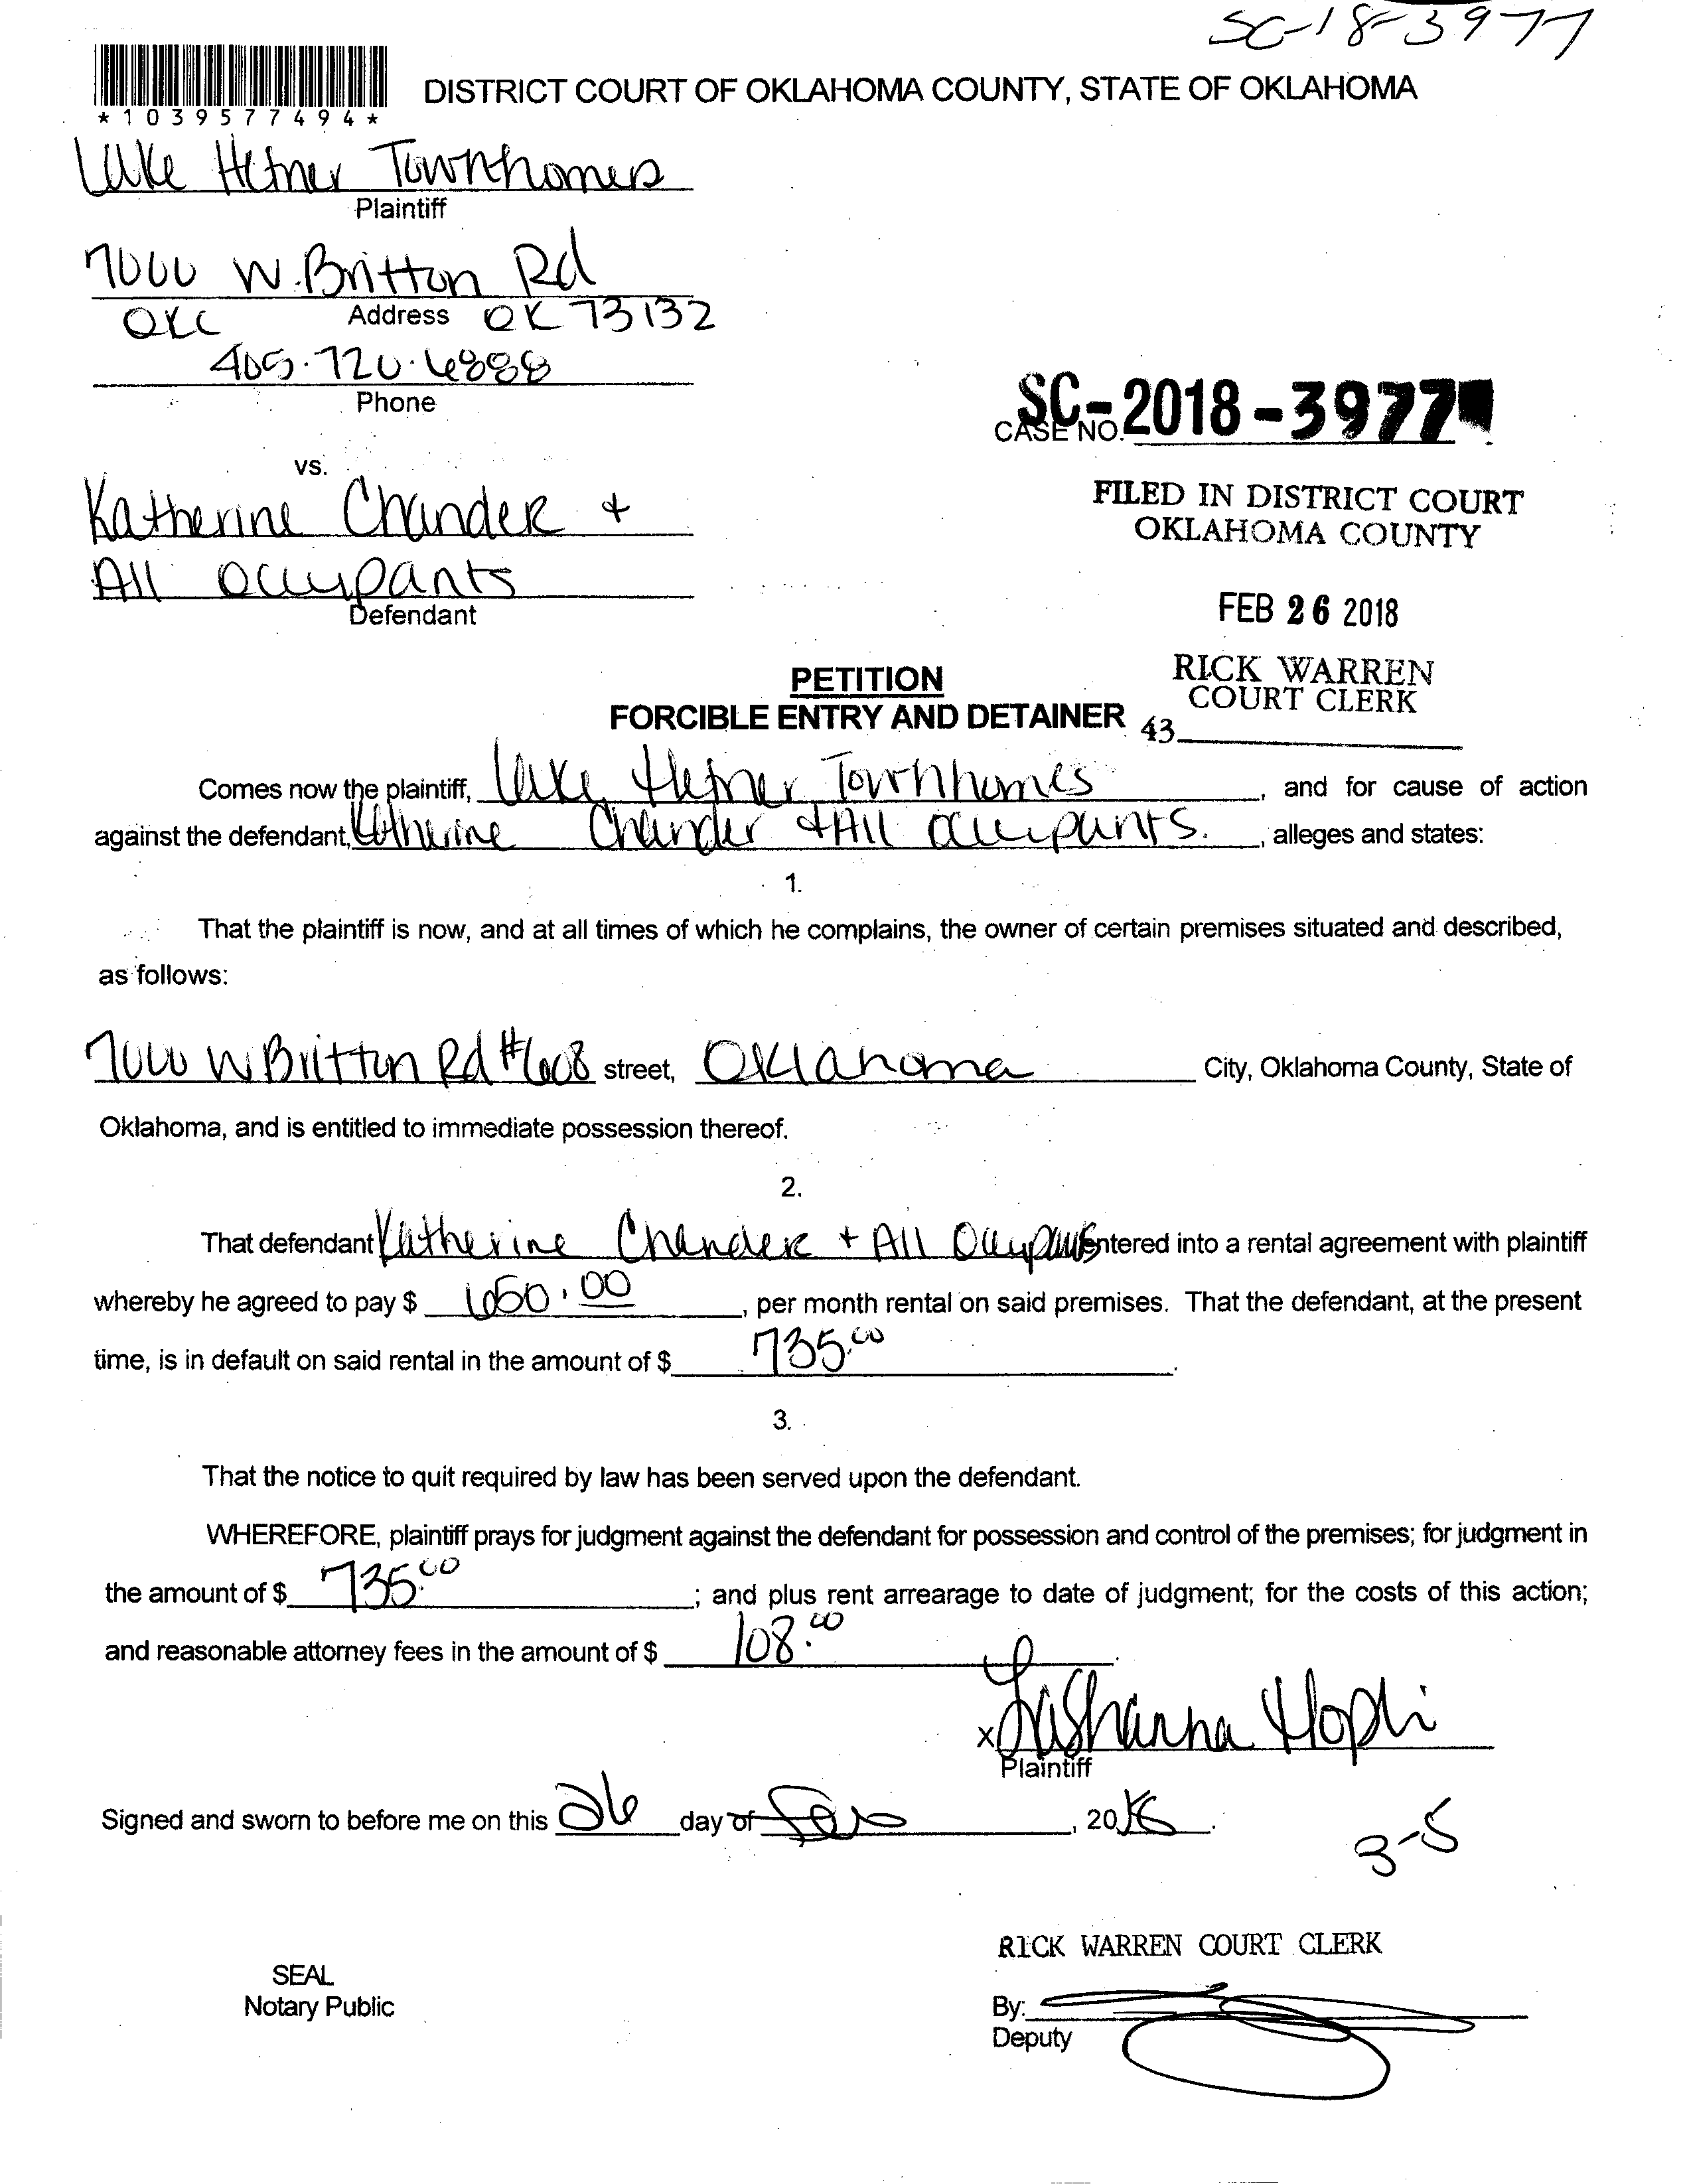 SC-18-3977
*1039577494*
DISTRICT COURT OF OKLAHOMA COUNTY, STATE OF OKLAHOMA
Lake Hefner Townhomes
Plaintiff
7000 W. Britton Rd
OKC Address OK 73132
405.720.6888
Phone
SC-2018-3977
CASE NO.
vs.
Katherine Chander +
All Occupants
Defendant
FILED IN DISTRICT COURT
OKLAHOMA COUNTY
FEB 26 2018
RICK WARREN
COURT CLERK
43
PETITION
FORCIBLE ENTRY AND DETAINER
Comes now the plaintiff, Lake Hefner Townhomes, and for cause of action
against the defendant, Katherine Chander + All Occupants., alleges and states:
1.
That the plaintiff is now, and at all times of which he complains, the owner of certain premises situated and described,
as follows:
7000 W Britton Rd #608 street, Oklahoma City, Oklahoma County, State of
Oklahoma, and is entitled to immediate possession thereof.
2.
That defendant Katherine Chander + All Occupants entered into a rental agreement with plaintiff
whereby he agreed to pay $ 650.00, per month rental on said premises. That the defendant, at the present
time, is in default on said rental in the amount of $ 735.00.
3.
That the notice to quit required by law has been served upon the defendant.
WHEREFORE, plaintiff prays for judgment against the defendant for possession and control of the premises; for judgment in
the amount of $ 735.00; and plus rent arrearage to date of judgment; for the costs of this action;
and reasonable attorney fees in the amount of $ 108.00.
x LaShanna
Plaintiff
Signed and sworn to before me on this 26 day of Feb, 2018.
3-5
RICK WARREN COURT CLERK
SEAL
Notary Public
By:
Deputy